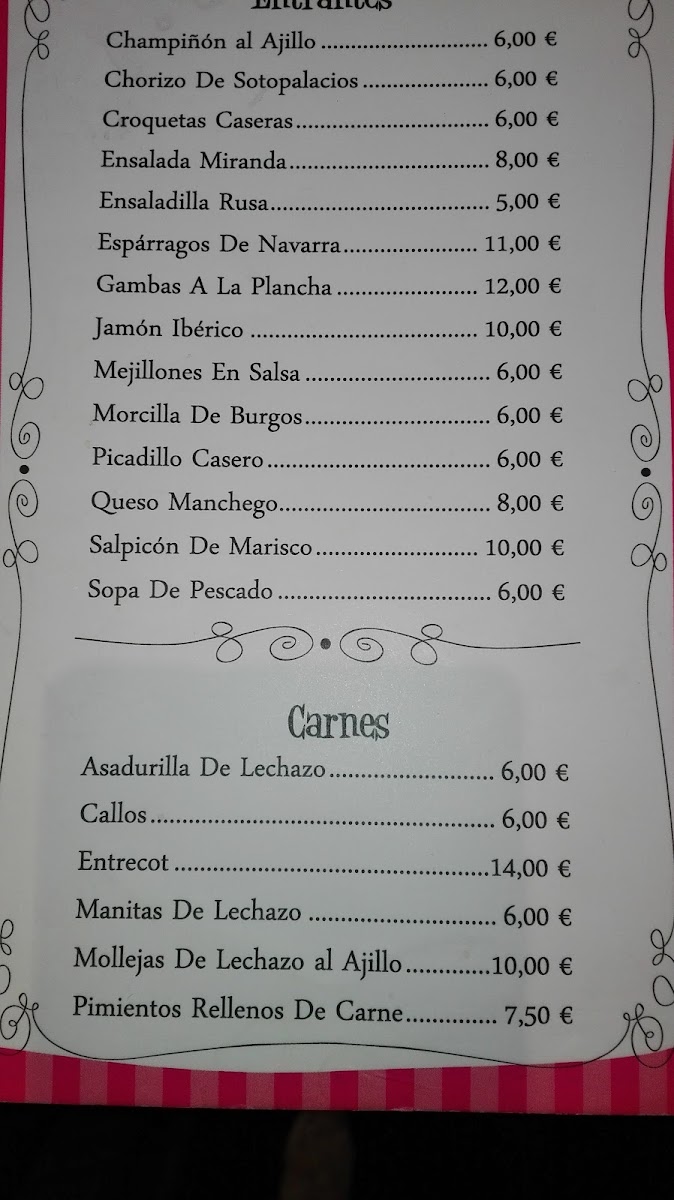 Entrantes
Champiñón al Ajillo ................................ 6,00 €
Chorizo De Sotopalacios ........................ 6,00 €
Croquetas Caseras..................................... 6,00 €
Ensalada Miranda...................................... 8,00 €
Ensaladilla Rusa.......................................... 5,00 €
Espárragos De Navarra.......................... 11,00 €
Gambas A La Plancha ........................... 12,00 €
Jamón Ibérico ........................................... 10,00 €
Mejillones En Salsa ................................... 6,00 €
Morcilla De Burgos................................... 6,00 €
Picadillo Casero.......................................... 6,00 €
Queso Manchego........................................ 8,00 €
Salpicón De Marisco............................... 10,00 €
Sopa De Pescado ........................................ 6,00 €
Carnes
Asadurilla De Lechazo............................... 6,00 €
Callos................................................................. 6,00 €
Entrecot ...........................................................14,00 €
Manitas De Lechazo ................................... 6,00 €
Mollejas De Lechazo al Ajillo.............10,00 €
Pimientos Rellenos De Carne.............. 7,50 €